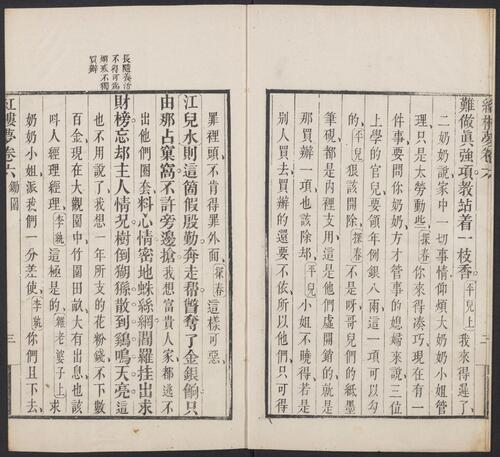 紅樓夢卷六 二
難做眞強項教站着一枝香平兒上我來得遲了
二奶奶說家中一切事情仰煩大奶奶小姐管
理只是太勞動些探春你來得湊巧現在有一
件事要問你奶奶方才管事的媳婦來說三位
上學的官兒要領年例銀八兩這一項可以勾
的平兒狠該開除探春不是呀哥兒們的紙墨
筆硯都是內裡支用這是他們虛開銷的就是
那買辦一項也該除却平兒小姐不曉得若是
別人買去買辦的還要不依所以他們只可得
罪裡頭不肯得罪外面探春這樣可惡
江兒水則這箇假殷勤奔走帮奪了金銀餉只
由那占窠窩不許旁邊搶我想富貴人家都逃不
出他們圈套料心情密地蛛絲網羅挂出求
財榜忘却主人情况樹倒猢猻散到鷄鳴天亮這
也不用說了我想一年所支的花粉錢不下數
百金現在大觀園中竹園田畝大有出息也該
呌人經理經理李紈這極是的雜老婆子上求
奶奶小姐派我們一分差使李紈你們且下去
紅樓夢卷六 鋤園 三
長隨養活
不得可為
不獨
買辦